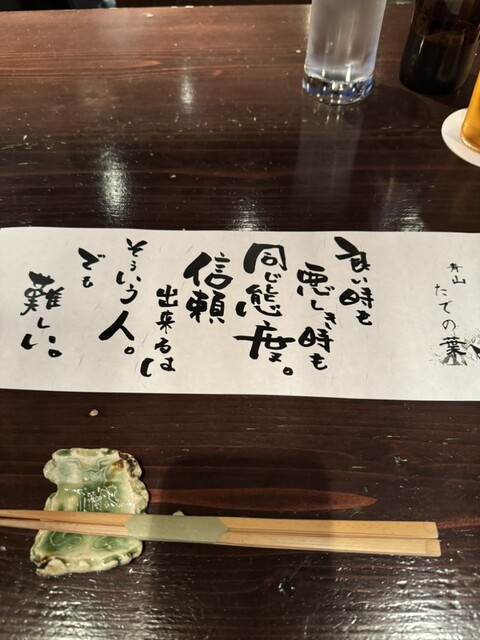 青山
たての葉
良い時も
悪しき時も
同じ態度。
信頼
出来るは
そういう人。
でも
難しい。